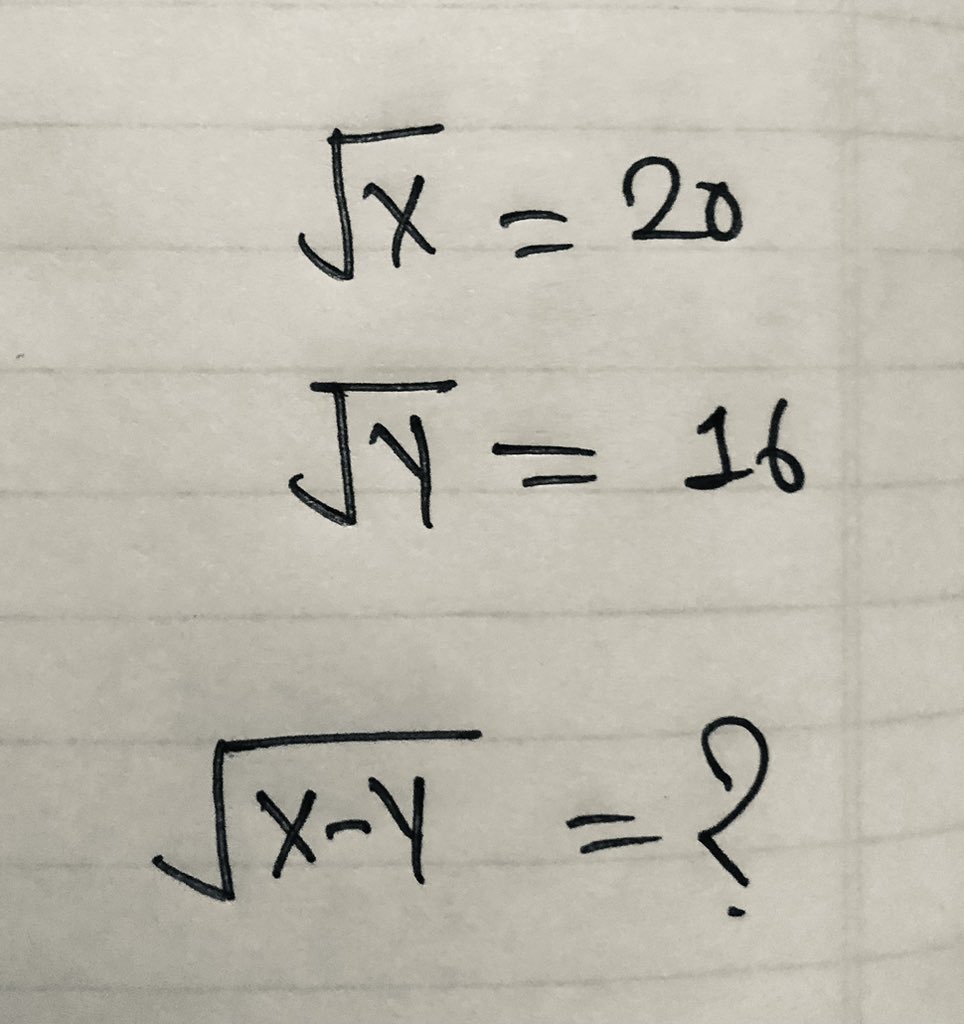 √x = 20
√y = 16
√x-y = ?